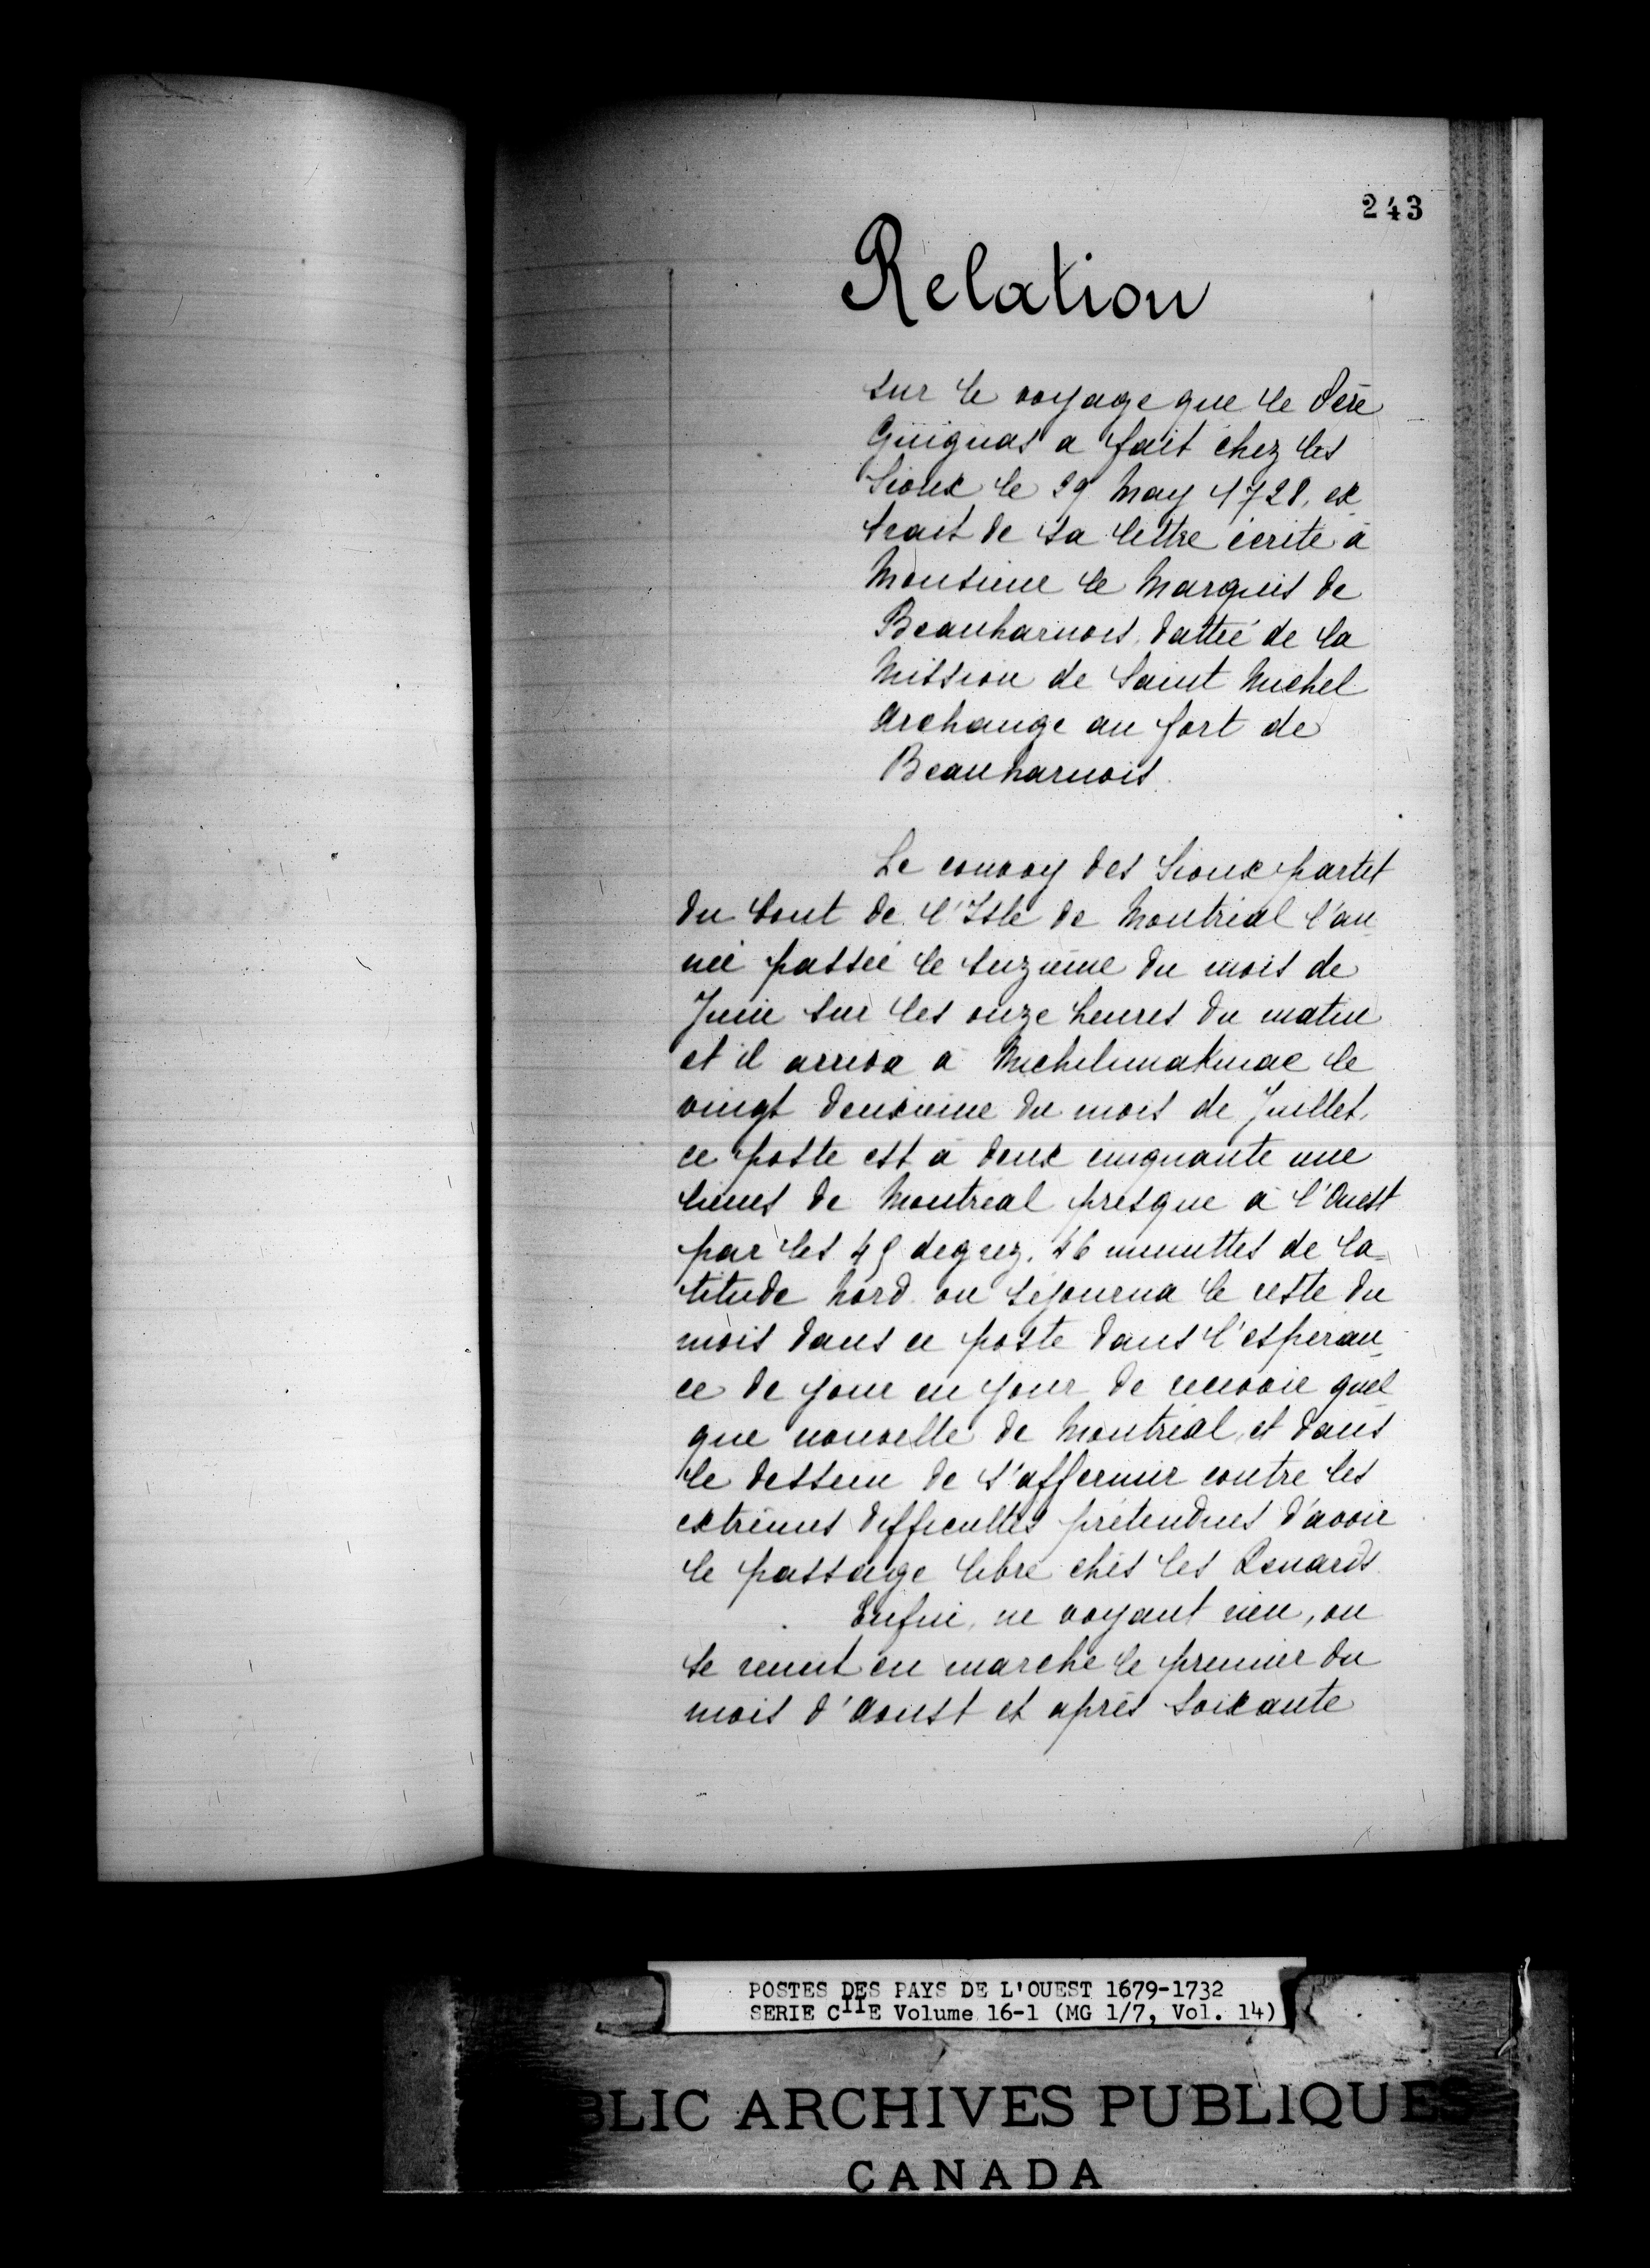 243
Relation
sur le voyage que le Père
Guignas a fait chez les
Sioux le 29 May 1728, ex
trait de sa lettre écrite à
Monsieur le Marquis de
Beauharnois, dattée de la
Mission de Saint Michel
Archange au fort de
Beauharnois.
Le convoy des Sioux partit
du bout de l'Isle de Montréal l'an
née passée le seizième du mois de
Juin sur les onze heures du matin
et il arriva à Michilimakinac le
vingt deuxième du mois de Juillet,
ce poste est à deux cinquante une
lieues de Montréal presque à l'Ouest
par les 45 degrez, 46 minuttes de la
titude Nord on séjourna le reste du
mois dans ce poste dans l'esperan
ce de jour en jour de recevoir quel
que nouvelle de Montréal et dans
le dessein de s'affermir contre les
extrêmes difficultés prétendues d'avoir
le passage libre chés les Renards.
Enfin, ne voyant rien, on
se remit en marche le premier du
mois d'Aoust et après soixante
POSTES DES PAYS DE L'OUEST 1679-1732
SERIE C11E Volume 16-1 (MG 1/7, Vol. 14)
BLIC ARCHIVES PUBLIQUES
CANADA